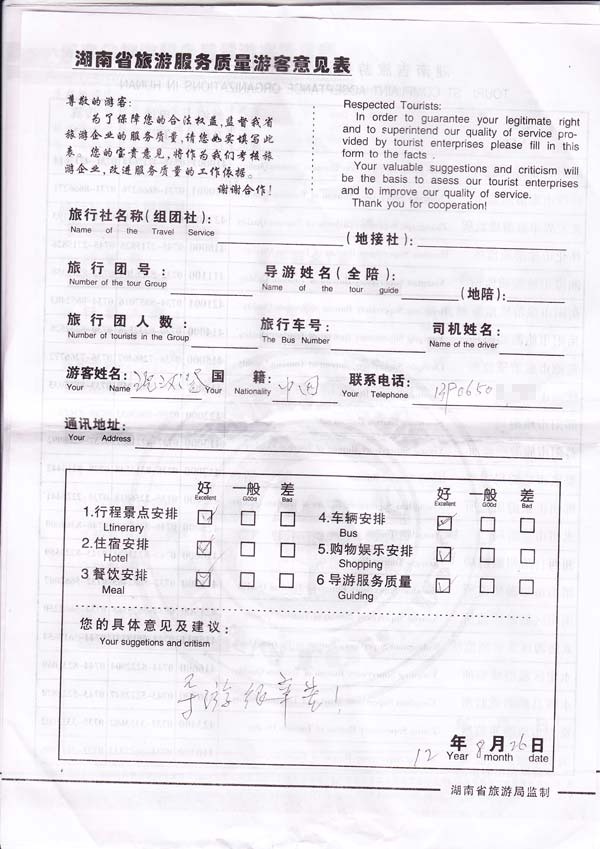 湖南省旅游服务质量游客意见表
尊敬的游客:
为了保障您的合法权益,监督我省
旅游企业的服务质量,请您如实填写此
表。您的宝贵意见,将作为我们考核旅
游企业,改进服务质量的工作依据。
谢谢合作!
Respected Tourists:
In order to guarantee your legitimate right
and to superintend our quality of service pro-
vided by tourist enterprises please fill in this
form to the facts .
Your valuable suggestions and criticism will
be the basis to asess our tourist enterprises
and to improve our quality of service.
Thank you for cooperation!
旅行社名称(组团社): (地接社):
Name of the Travel Service
旅行团号: 导游姓名(全陪): (地陪):
Number of the tour Group Name of the tour guide
旅行团人数: 旅行车号: 司机姓名:
Number of tourists in the Group The Bus Number Name of the driver
游客姓名: 国籍: 中国 联系电话:
Your Name Your Nationality Your Telephone
通讯地址:
Your Address
好 一般 差 好 一般 差
Excellent G00d Bad Excellent G00d Bad
1.行程景点安排 4.车辆安排
Ltinerary Bus
2.住宿安排 5.购物娱乐安排
Hotel Shopping
3 餐饮安排 6 导游服务质量
Meal Guiding
您的具体意见及建议:
Your suggetions and critism
导游很辛苦!
12 年 8 月 26 日
Year month date
湖南省旅游局监制